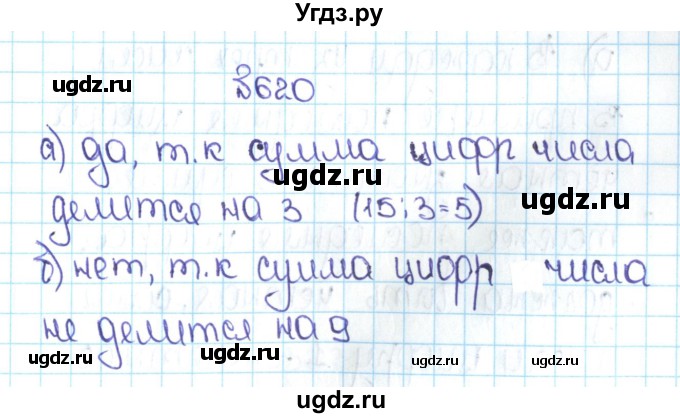 Угдз.ру
ugdz.ru
№620
ugdz.ru
а) да, т.к сумма цифр числа
ugdz.ru
делится на 3 (15:3=5)
ugdz.ru
б) нет, т.к сумма цифр числа
не делится на 9
ugdz.ru
ugdz.ru
ugdz.ru
ugdz.ru
Угдз.ру